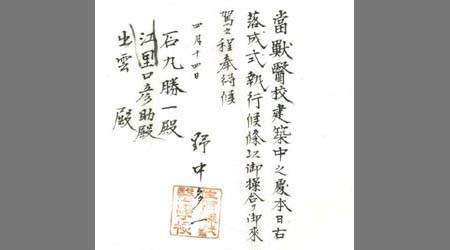 當獣醫校建築中之處本日右
落成式執行候條以御操合御來
駕之程奉待候
四月十四日
野中
石九勝一殿
江里口彦助殿
出雲殿